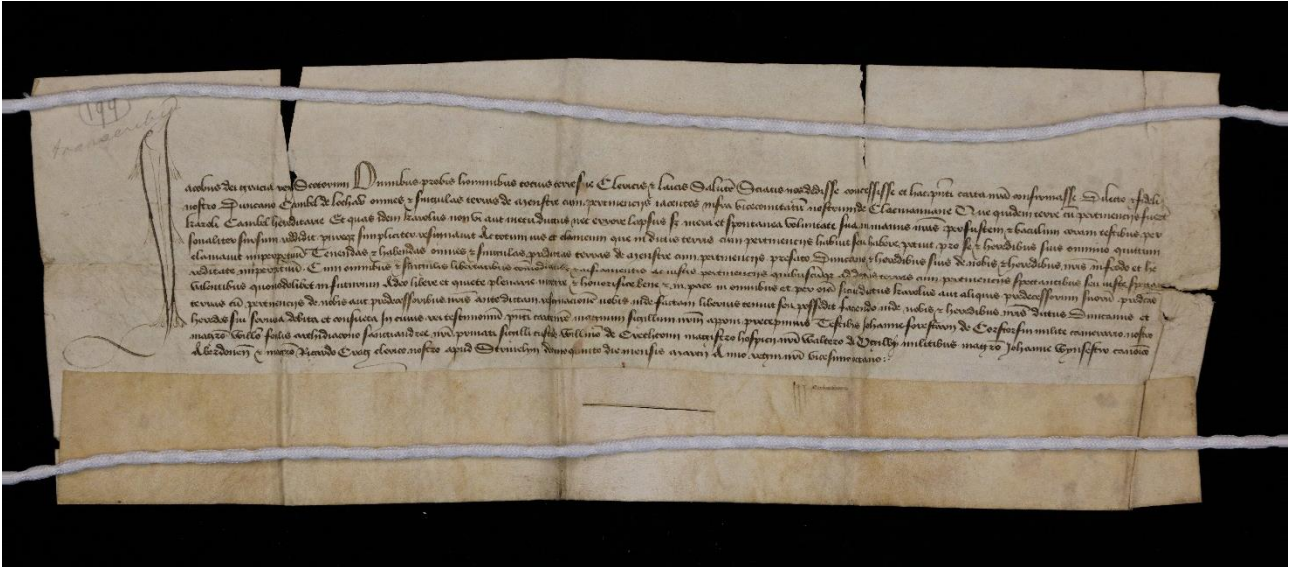 199
transcribed
Jacobus dei gracia rex Scotorum Omnibus probis hominibus tocius terre sue Clericis & laicis Salutem Sciatis nos dedisse concessisse et hac pnti carta nra confirmasse Dilecto & fideli
nostro Duncano Cambel de lochaw omnes & singulas terras de menstre cum pertinencijs iacentes infra vicecomitatum nostrum de Clacmanane Que quidem terre cu pertinencijs fuert
karoli Cambel hereditarie Et quas idem karolus non vi aut metu ductus nec errore lapsus s; mera et spontanea voluntate sua in manus nras per fustem & baculum coram testibus per
sonaliter sursum reddidit pureqz simpliciter resignauit Ac totum ius et clameum que in dictis terris cum pertinencijs habuit seu habere potuit pro se & heredibus suis omnino quittum
clamauit imperpetuu Tenendas & habendas omnes & singulas predictas terras de menstre cum pertinencijs prefato Duncano & heredibus suis de nobis & heredibus nris in feodo et he
reditate imperpetuu Cum omnibus & singulis libertatibus comoditatibus & aisiamentis ac iustis pertinencijs quibuscumqz ad dictas terras cum pertinencijs spectantibus seu iuste spectare
valentibus quomodolibet in futurum Adeo libere et quiete plenarie integre & honorifice bene & in pace in omnibus et per oia sicut dictus karolus aut aliquis predecessorum suorum predictas
terras cu pertinencijs de nobis aut predecessoribus nris ante dictam resignacionem nobis inde factam liberius tenuit seu possedit faciendo inde nobis & heredibus nris dictus Duncanus et
heredes sui seruicia debita et consueta In cuius rei testimonium pnti carte nre magnum sigillum nrm apponi precepimus Testibus Johanne forestare de Corstorfin milite camerario nostro
magro Willo foulis archidiacono sanctiandree nri priuati sigilli custode Willmo de Crechtoun magistro hospicij nri Waltero de Ogilby militibus magro Johanne Wynsester canonico
Aberdonen & magro Ricardo Crag clerico nostro apud Striuelyn quinto die mensis marcij Anno regni nri vicesimooctauo